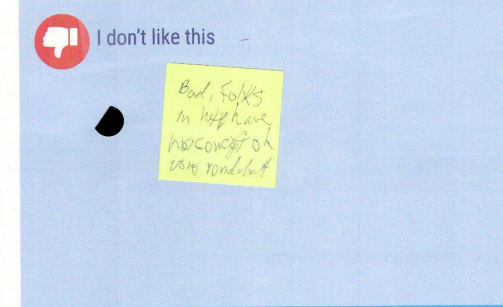 I don't like this
Bad, Folks
in have
no concept on
using roundabout